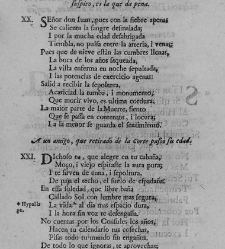 suspiro, es la que da pena.
XX. Señor don Juan, pues con la fiebre apenas
Se calienta la sangre desmayada,
I por la mucha edad desabrigada
Tiembla, no pulsa entre la arteria, i venas;
Pues que de nieve están las cumbres llenas,
La boca de los años saqueada,
La vista enferma en noche sepultada,
I las potencias de exercicio agenas:
Salid a recibir la sepoltura,
Acariciad la tumba, i monumento,
Que morir vivo, es ultima cordura.
La maior parte de la Muerte, siento
Que se passa en contentos, i locura;
I a la menor se guarda el sentimiento.
A un amigo, que retirado de la Corte passó su edad.
XXI. Dichoso tu, que alegre en tu cabaña,
Moço, i viejo espiraste la aura pura;
I te sirven de cuna, i sepoltura,
De paja el techo, el suelo de espadaña.
En essa soledad, que libre baña
Callado Sol con lumbre mas segura,
* Hypallage. La vida* al dia mas espacio dura,
I la hora sin voz te desengaña.
No cuentas por los Consules los años,
Hacen tu calendario tus cosechas,
Pisas todo tu mundo sin engaños.
De todo lo que ignoras, te aprovechas;